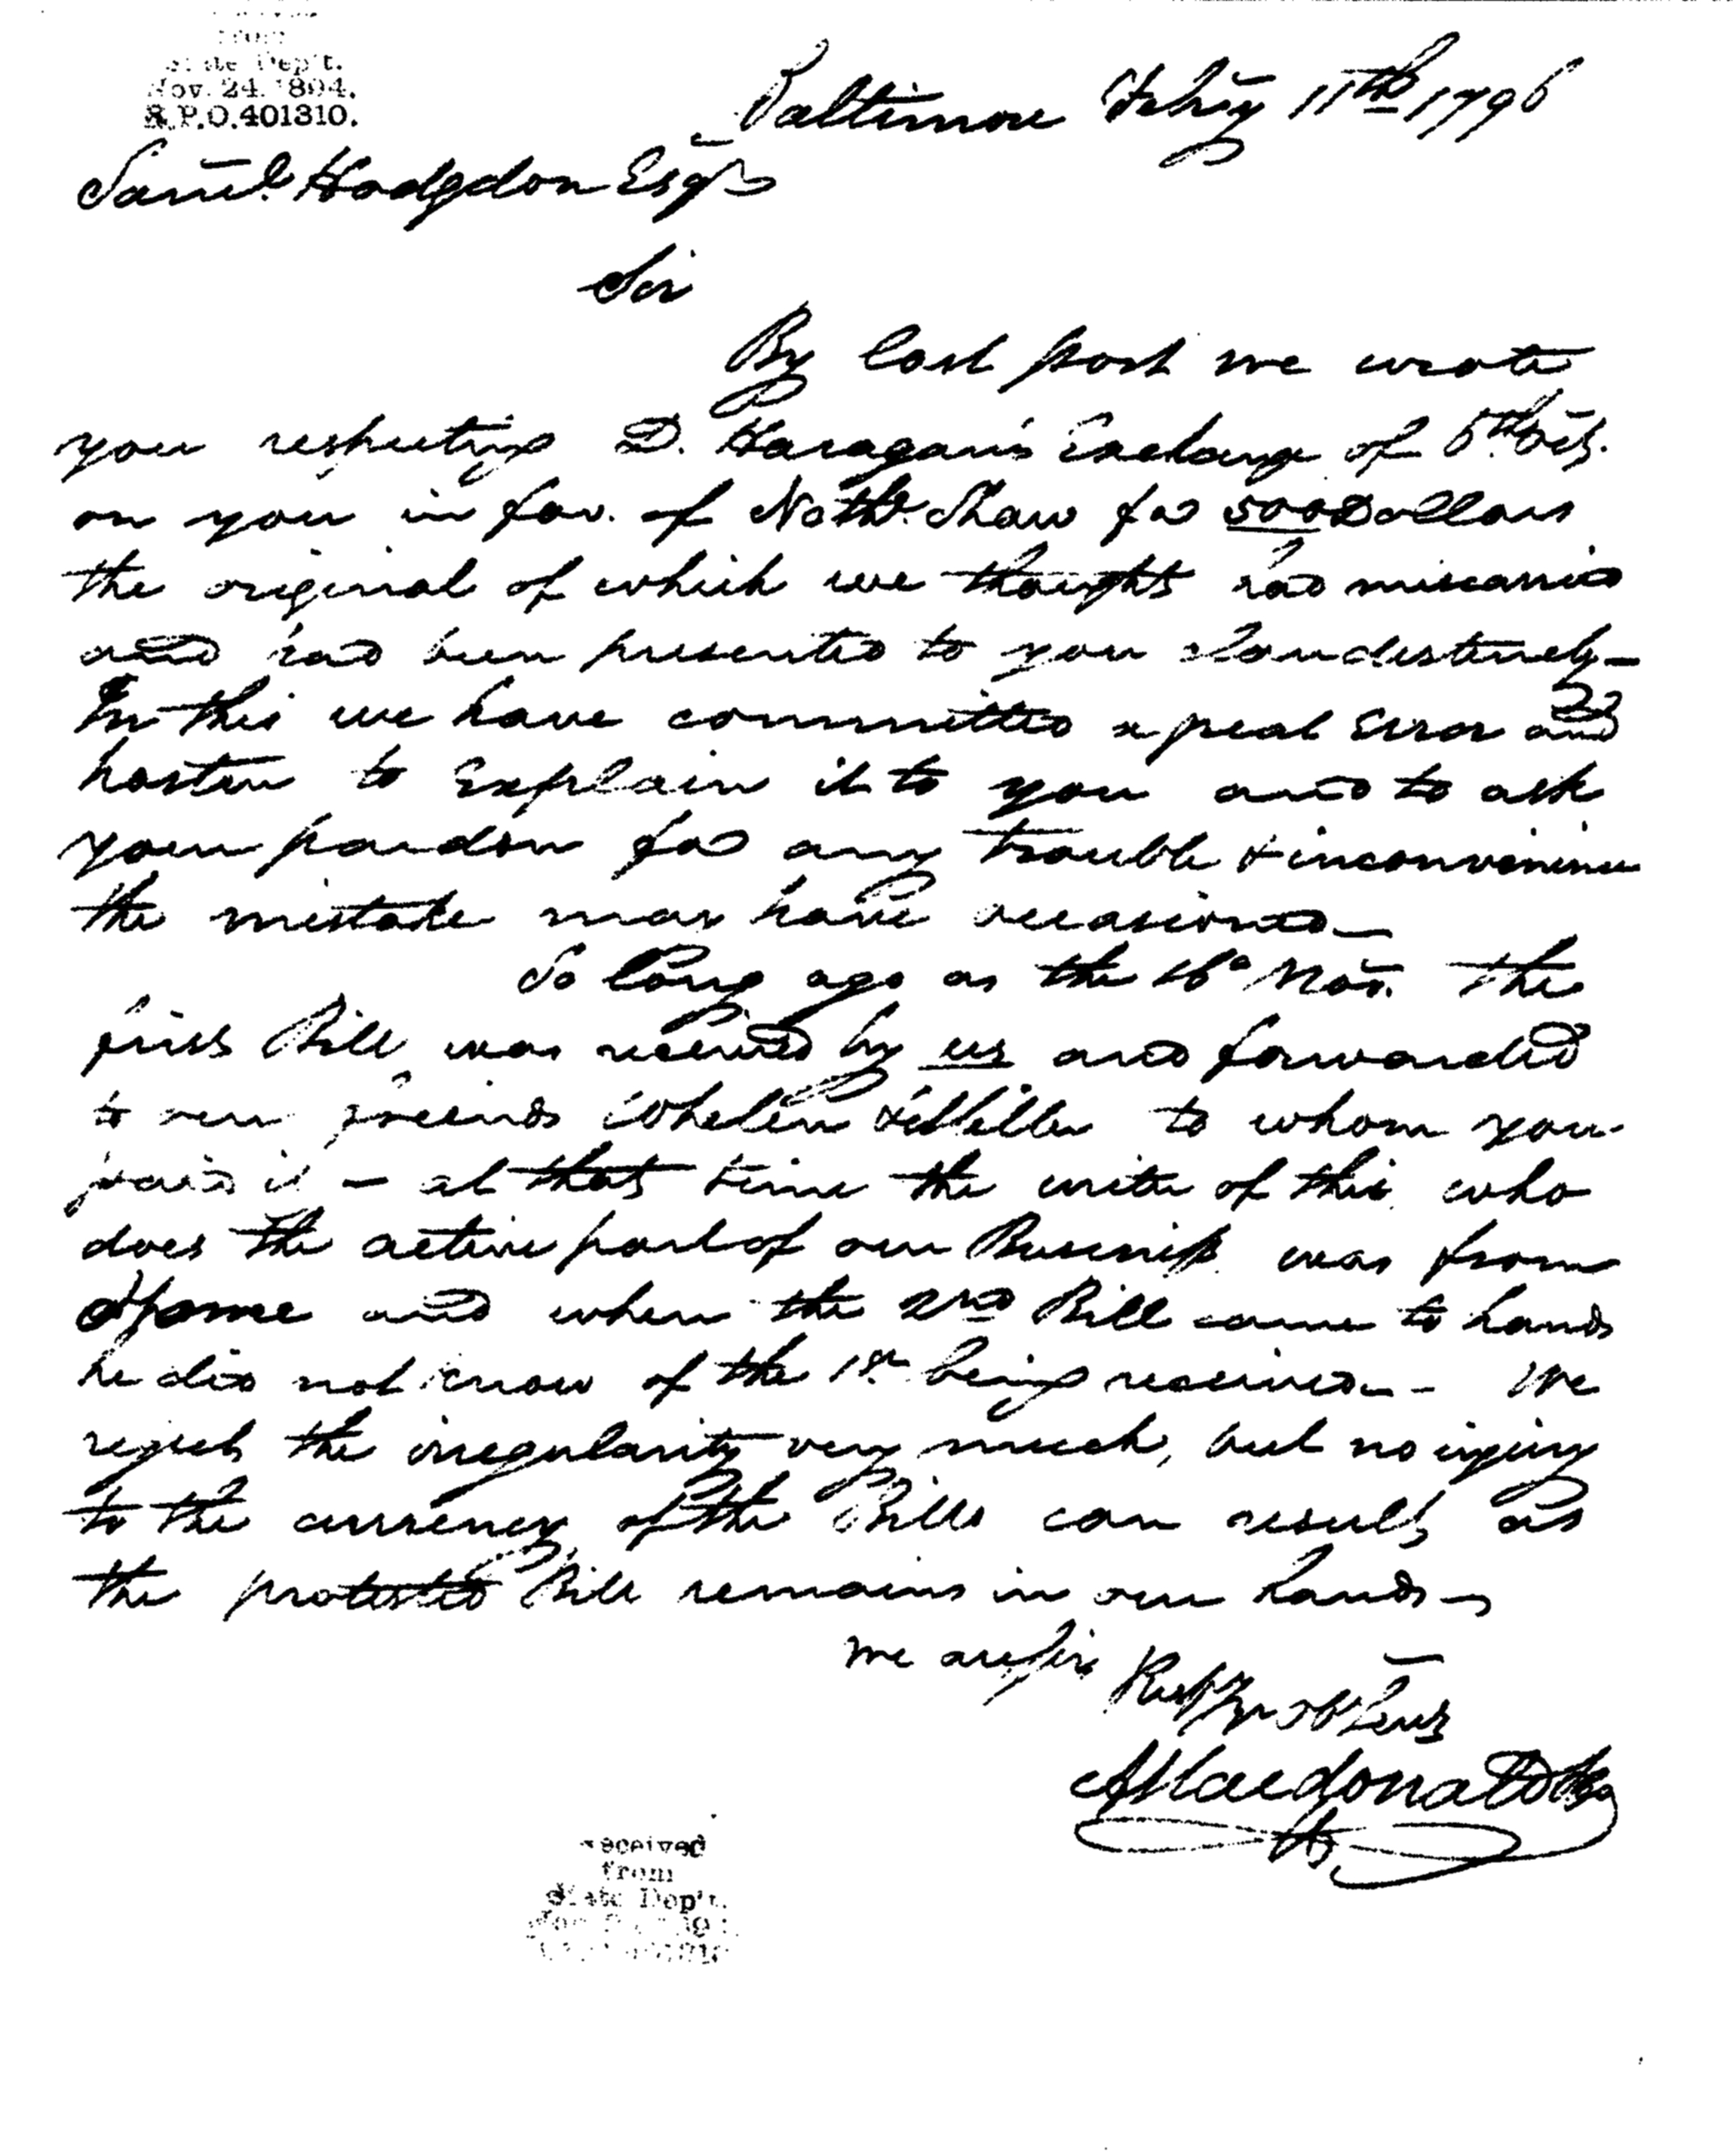 from
State Dep't.
Nov. 24. 1894.
R.P.O. 401310.
Baltimore Febry 11th 1796
Saml. Hodgdon Esqr
Sir
By last post we wrote
you respecting D. Exchange of 5th Oct.
on you in fav. of Nathl. Shaw for 500 Dollars
the original of which we thought had miscarried
and had been presented to you clandestinely –
In this we have committed a great Error and
hasten to Explain it to you and to ask
your pardon for any trouble & inconvenience
the mistake may have occasioned –
So long ago as the Nov. the
first Bill was received by us and forwarded
to our friends Whelen & Miller to whom you
paid it – at that time the writer of this who
does the active part of our Business was from
Home and when the 2nd Bill came to hand
he did not know of the 1st being received – We
regret the irregularity very much, but no injury
to the currency of the Bills can result, as
the protested Bill remains in our hands –
We are Sir
A Macdonald
received
from
State Dep't.